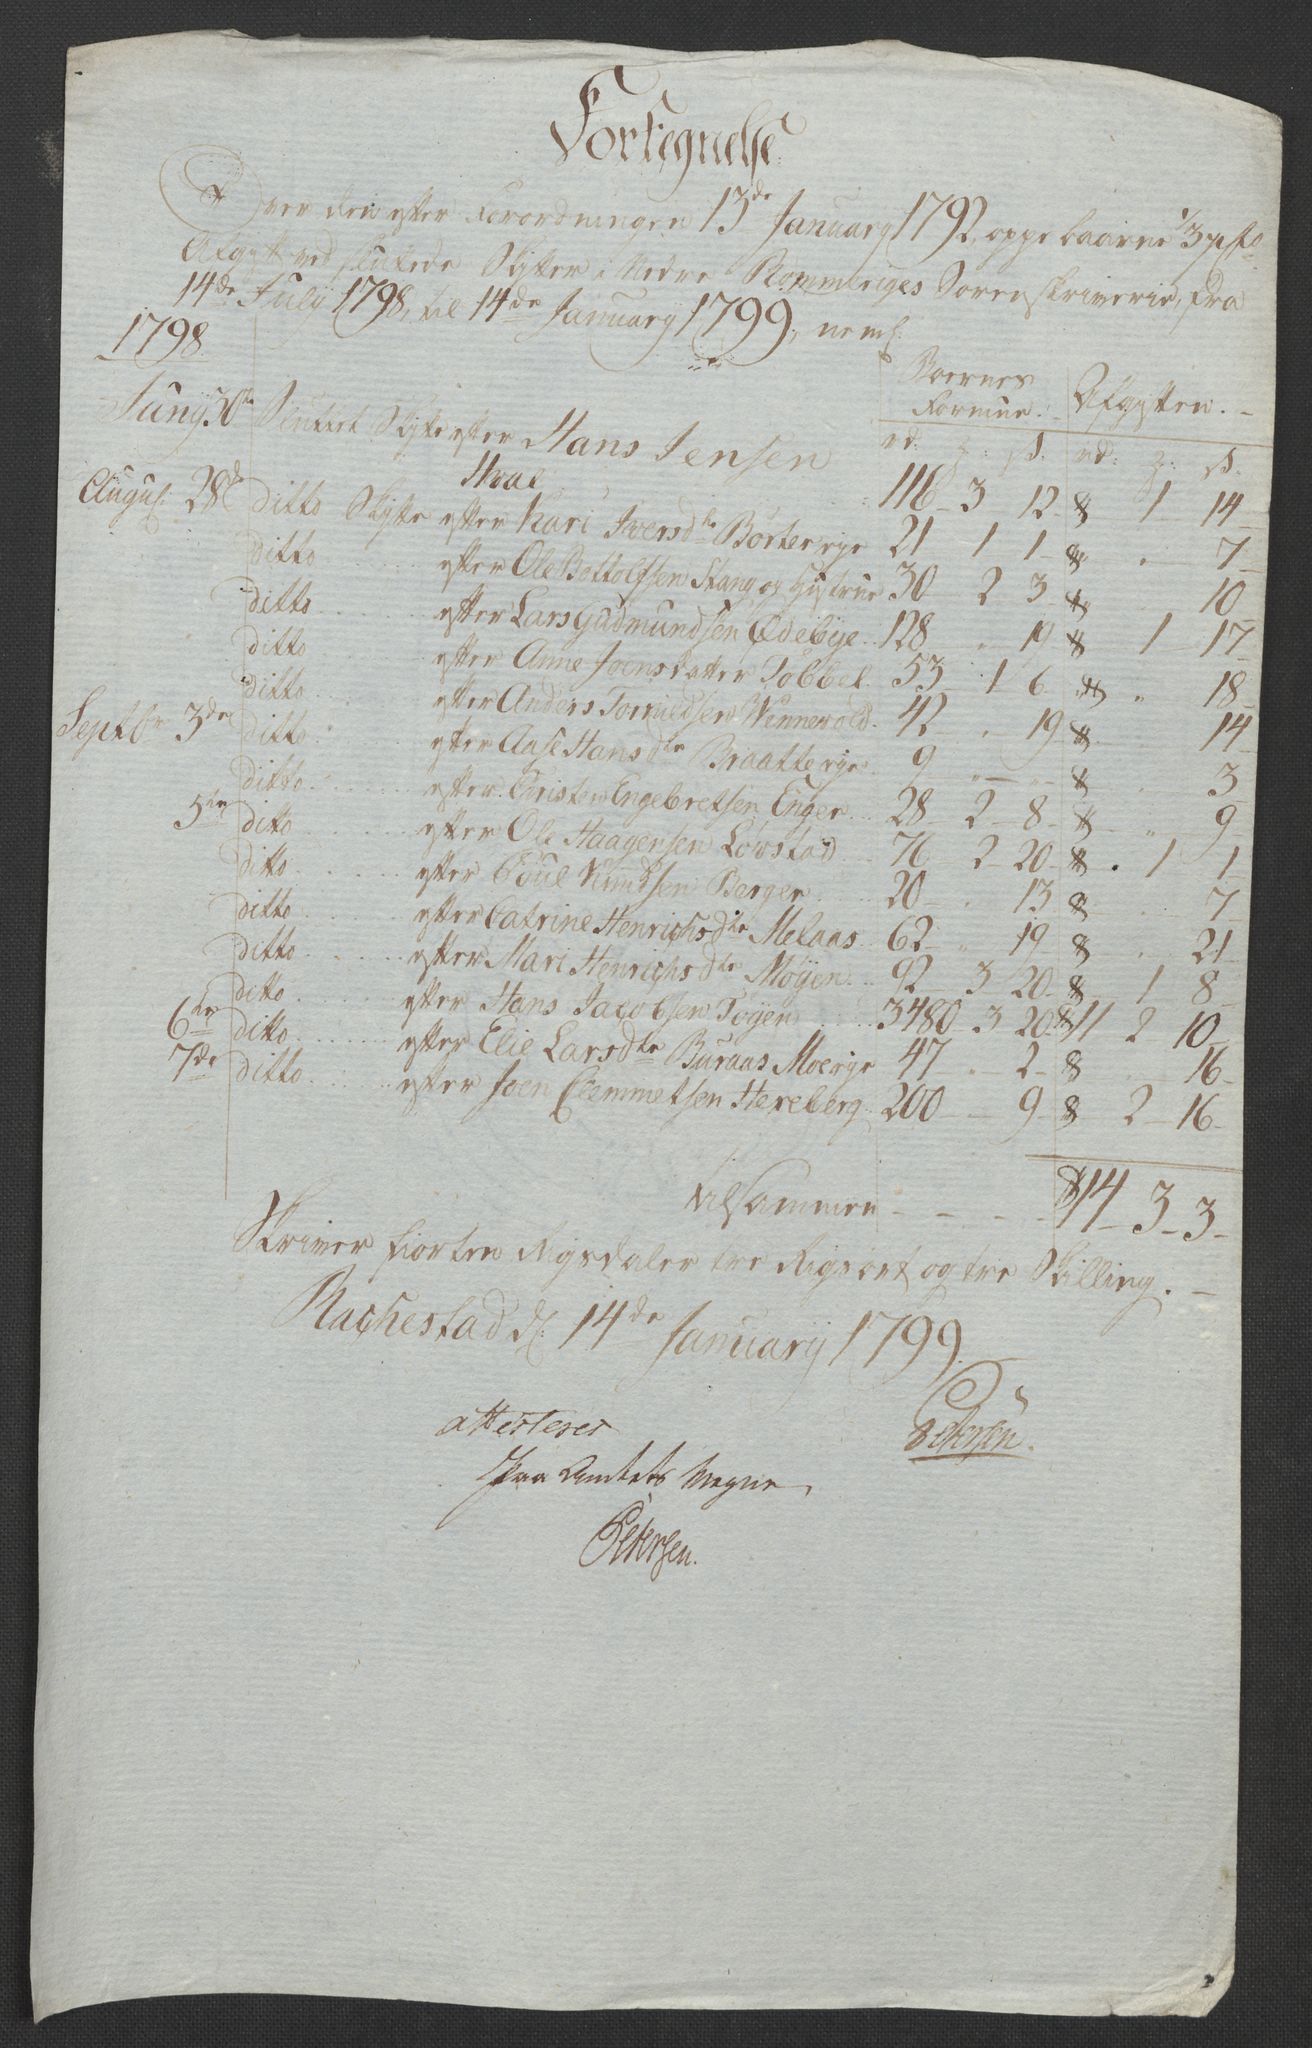 Fortegnelse
Over den efter Forordningen 13de January 1792, oppebaarne 1/3 pCto
Afgift ved sluttede Skifter i Nedre Rommeriges Sorenskriverie, fra
14de July 1798, til 14de January 1799, neml:
1798.
Boernes Formue. Afgiften.
rd: s. rd: s.
Juny 30te Sluttet Skifte efter Hans Jensen
Hval 116 3 12 1 14
August 28de ditto Skifte efter Kari Iversdtr Børter eye 21 1 1 7
ditto efter Ole Bottolfsen Stang og Hustrue 30 2 3 10
ditto efter Lars Gudmundsen Ødebye 128 19 1 17
ditto efter Anne Joensdatter Tobbel 53 1 6 18
ditto efter Anders Wennevold 42 19 14
Septbr 3de ditto efter Aase Hansdtr Braatte eye 9 3
ditto efter Christen Engebretsen Enger 28 2 8 9
5te ditto efter Ole Haagensen Løvstad 76 2 20 1 1
ditto efter Poul Knudsen Berger 20 13 7
ditto efter Catrine Henrichsdtr Melaas 62 19 21
ditto efter Mari Henrichsdtr Møyen 92 3 20 1 8
ditto efter Hans Jacobsen Toyen 3480 3 20 11 2 10
6te ditto efter Elie Larsdtr Buraas Moe eye 47 2 16
7de ditto efter Joen Clemmetsen Hexeberg 200 9 2 16
Tilsammen 14 3 3
Skriver fiorten Rigsdaler tre Rigsort og tre Skilling.
Rachestad d: 14de January 1799.
Petersen.
attesterer
Paa Amtets Vegne
Petersen.